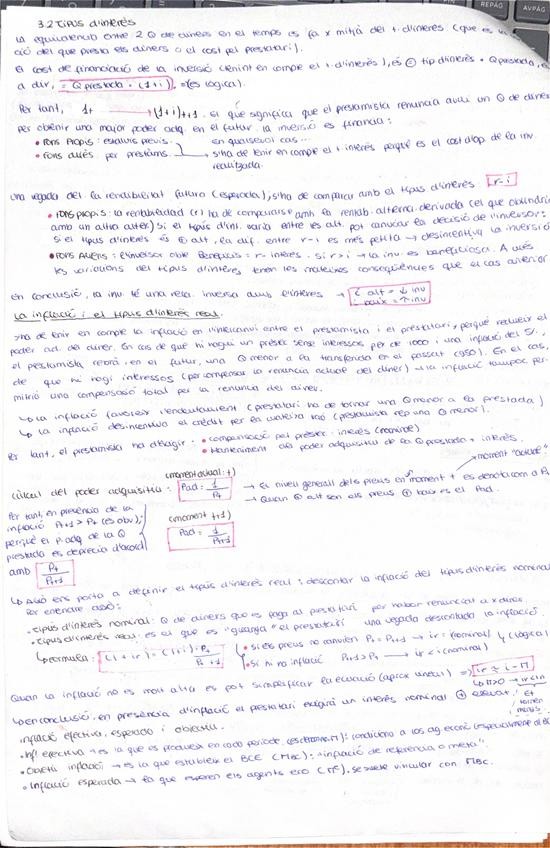 3.2 Tipus d'interès
La equivalencia entre 2 Q de diners en el temps es fa x mitjà del t. d'interès (que es la
ció del que presta els diners o el cost pel prestatari).
El cost de financiació de la inversió (tenint en compte el t. d'interès), és = tip d'interès · Q prestada, és
a dir, = Q prestada · (1+i), =(és lògica).
Per tant, 1t → (1+i)t+1. El que significa que el prestamista renuncia avui un Q de diners
per obtenir una major poder adq. en el futur. La inversió es financia:
• Fons propis: estalvis previs.
• Fons aliens per préstams.
en qualsevol cas...
s'ha de tenir en compte el t. interès perquè es el cost d'op. de la inv.
realitzada.
Una vegada def. la rendibilitat futura (esperada), s'ha de comparar amb el tipus d'interès r-i
• Fons propis: La rentabilidad (r) ha de comparar-se amb la rentab. alterna. derivada (el que obtindria
amb un altra alter.) si el tipus d'int. varia entre les alt. pot canviar la decisió de l'inversor:
si el tipus d'interès és ⊕ alt, la dif. entre r-i es més petita → desincentiva la inversió
• Fons Aliens: l'inversor obté Beneficis = r- interès. Si r>i → la inv. es beneficiosa. A més
les variacions del tipus d'interès tenen les mateixes conseqüències que el cas anterior
En conclusió, la inv. té una rela. inversa amb l'interès → i alt = ↓ inv
i baix = ↑ inv
La inflació i el tipus d'interès real.
S'ha de tenir en compte la inflació en l'intercanvi entre el prestamista i el prestatari, perquè redueix el
poder ad. del diner. En cas de que hi hagui un préstec sense interessos per de 1000 i una inflació del 5%,
el prestamista rebrà, en el futur, una Q menor a la transferida en el passat (950). En el cas,
de que hi hagi interessos (per compensar la renuncia actual del diner) → la inflació tampoc per-
mitirà una compensació total per la renuncia del diner.
↳ La inflació favoreix l'endeutament (prestatari ha de tornar una Q menor a la prestada)
↳ La inflació desincentiva el crèdit per la mateixa raó (prestamista rep una Q menor).
Per tant, el prestamista ha d'exigir: • compensació pel préstec: interès (nominal)
• Manteniment del poder adquisitiu de la Q prestada + interès.
moment "actual"
(moment actual: t)
Càlcul del poder adquisitiu: Pad = 1/Pt → El nivell general dels preus en moment t es denota com a Pt
→ Quan ⊕ alt son els preus ⊕ baix es el Pad.
Per tant, en presència de la
inflació Pt+1 > Pt (és obv);
perquè el p. adq de la Q
prestada es deprecia d'acord
amb Pt/Pt+1
(moment t+1)
Pad = 1/Pt+1
↳ Això ens porta a definir el tipus d'interès real: descomptar la inflació del tipus d'interès nominal
Per entendre això:
• Tipus d'interès nominal: Q de diners que es paga al prestatari per haber renunciat a x diners.
• Tipus d'interès real: es el que es "guanya" el prestatari una vegada descontada la inflació.
↳ Fórmula: (1+ir) = (1+i) · Pt/Pt+1
• si els preus no canvien Pt = Pt+1 → ir = i (nominal)
• Si hi ha inflació Pt+1 > Pt → ir < i (nominal)
(y lògica)
Quan la inflació no es molt alta es pot simplificar la ecuació (aprox lineal) ⇒ ir ≈ i - π
↳ π>0 → ir<in
↳ en conclusió, en presència d'inflació el prestatari exigirà un interès nominal ⊕ elevat.
Inflació efectiva, esperada i objectiu.
• Inf. efectiva → es la que es produeix en cada període. (es denota π): condiciona a los ag. econ (especialment al
• Objectiu inflació → es la que estableix el BCE (πBC): "inflació de referencia o meta".
• Inflació esperada → la que esperen els agents eco (πe). se suele vincular con πBC.